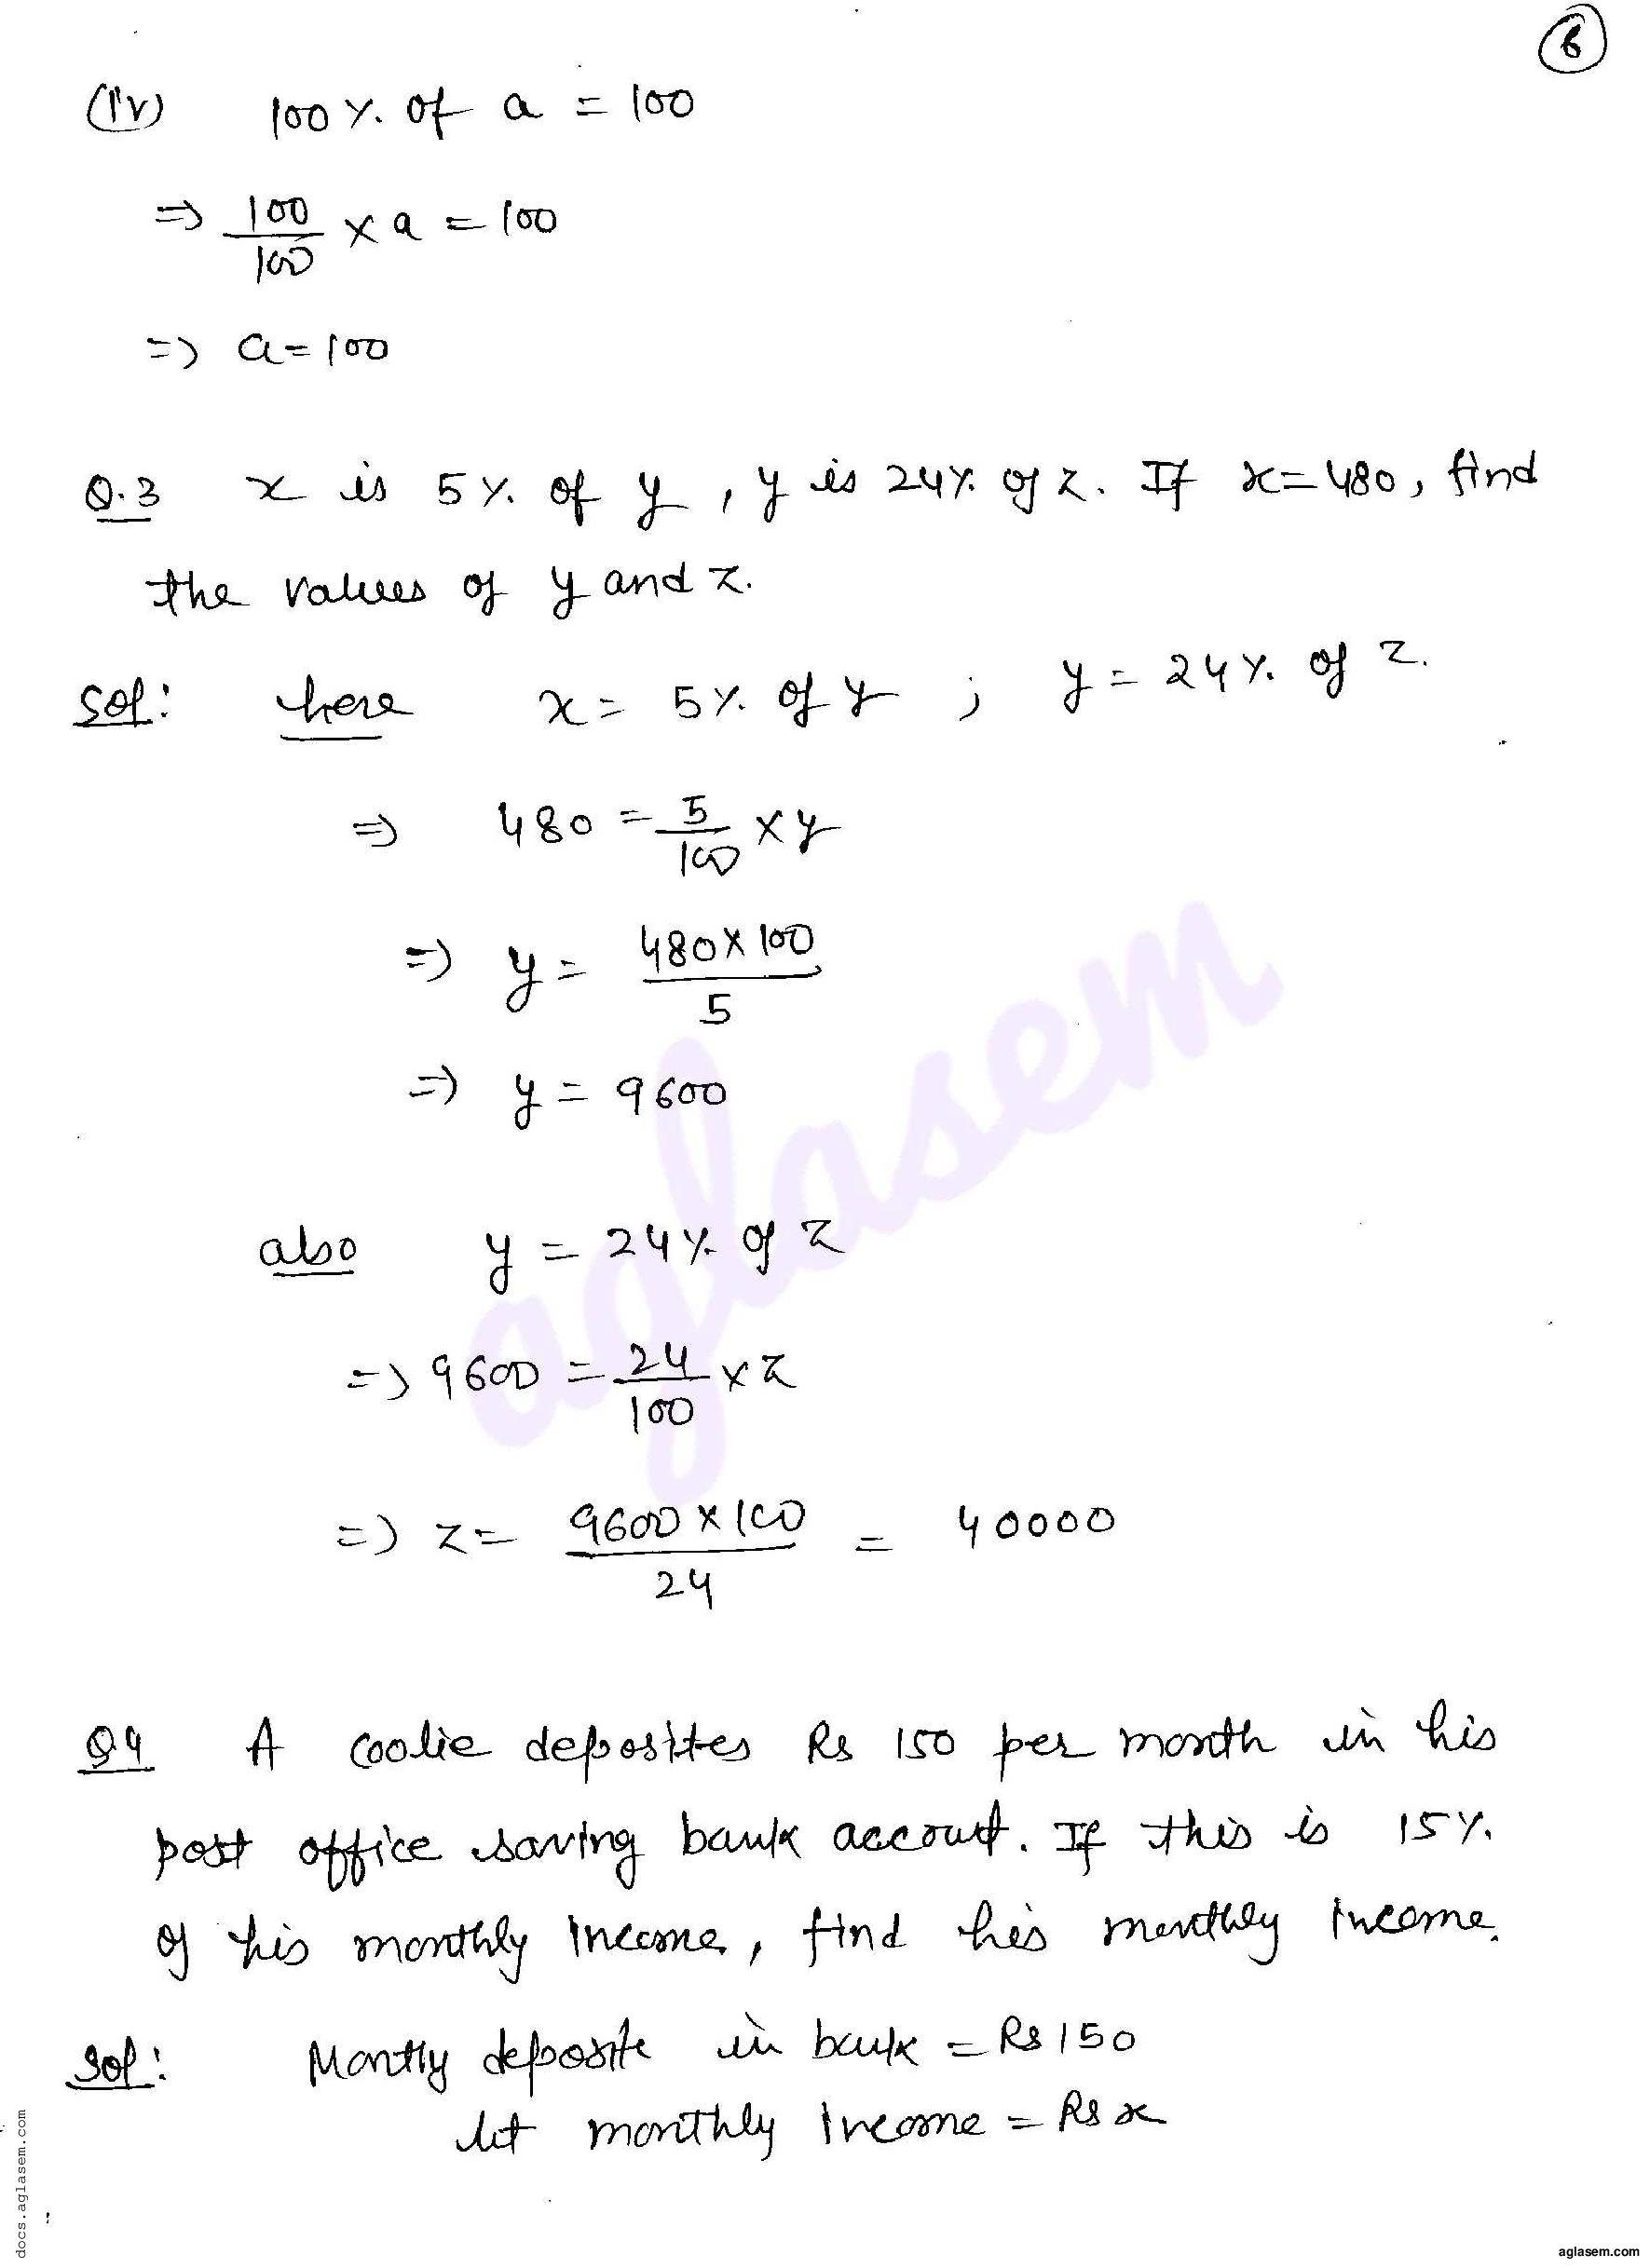 6
(iv) 100% of a = 100
=> 100/100 × a = 100
=> a = 100
Q.3 x is 5% of y, y is 24% of z. If x=480, find
the values of y and z.
Sol: here x = 5% of y ; y = 24% of z.
=> 480 = 5/100 × y
=> y = 480×100/5
=> y = 9600
also y = 24% of z
=> 9600 = 24/100 × z
=> z = 9600×100/24 = 40000
Q4 A coolie deposites Rs 150 per month in his
post office saving bank account. If this is 15%
of his monthly income, find his monthly income.
Sol: Montly deposite in bank = Rs 150
let monthly income = Rs x
aglasem
docs.aglasem.com
aglasem.com